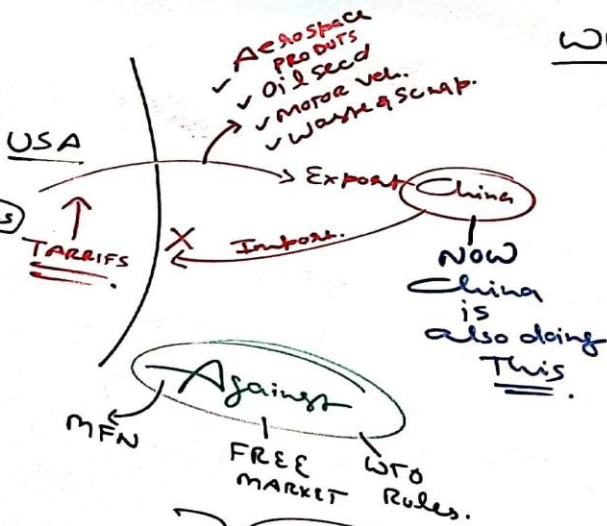 Aerospace
PRODUTS
✓ Oil seed
✓ MOTOR Veh.
✓ Waste & Scrap.
USA
Export China
TARRIFS
X Import.
NOW
China
is
also doing
This.
Against
MFN
FREE
MARKET
WTO
Rules.